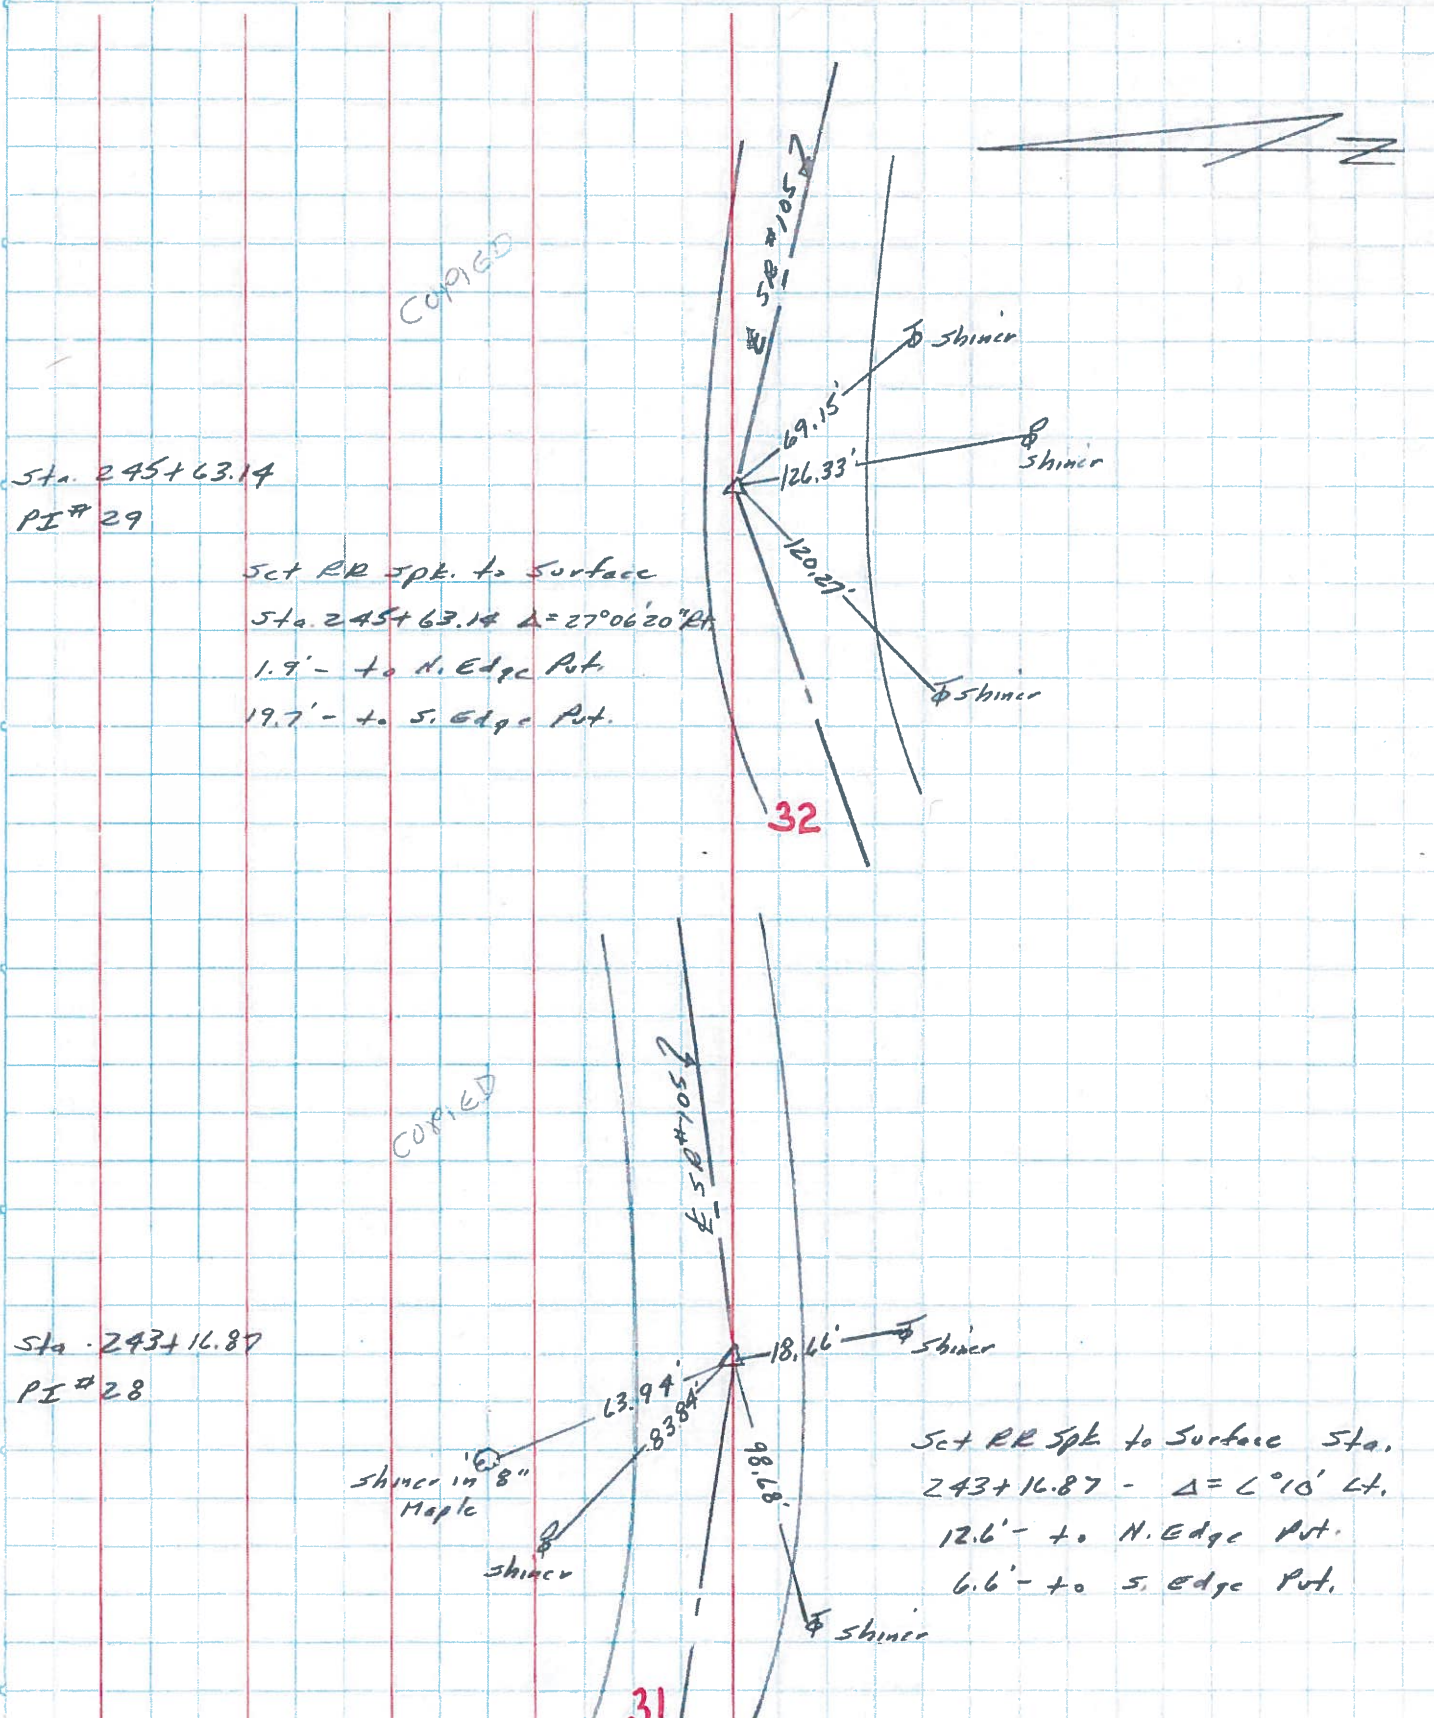 COPIED
℄ SR #105
N
shiner
69.15'
126.33'
shiner
Sta. 245+63.14
PI # 29
120.27'
Set RR Spk. to Surface
Sta. 245+63.14 Δ=27°06'20"Rt.
1.9' - to N. Edge Pvt.
19.7' - to S. Edge Pvt.
shiner
32
COPIED
℄ SR #105
Sta. 243+16.87
PI # 28
18.66'
shiner
63.94'
83.84'
98.68'
shiner in 8"
Maple
shiner
Set RR Spk. to Surface Sta.
243+16.87 - Δ= 6°10' Lt.
12.6' - to N. Edge Pvt.
6.6' - to S. Edge Pvt.
shiner
31